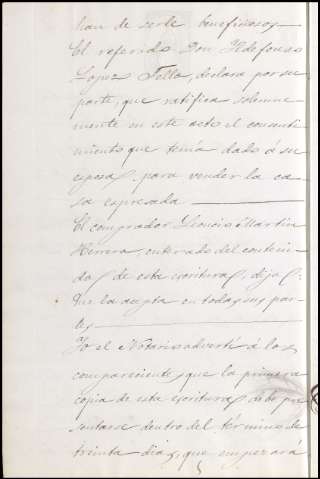 han de serle beneficiosos.
El referido Don Ildefonso
Lopez Tello, declara por su
parte, que ratifica solemne-
mente en este acto el consenti-
miento que tenía dado á su
esposa, para vender la ca-
sa expresada
El comprador Leoncio Martin
Herrera, enterado del conteni-
do de esta escritura, dijo:
Que la acepta en todas sus par-
tes
Yo el Notario advertí á los
comparecientes que la primera
copia de esta escritura debe pre-
sentarse dentro del término de
treinta dias, que empezará